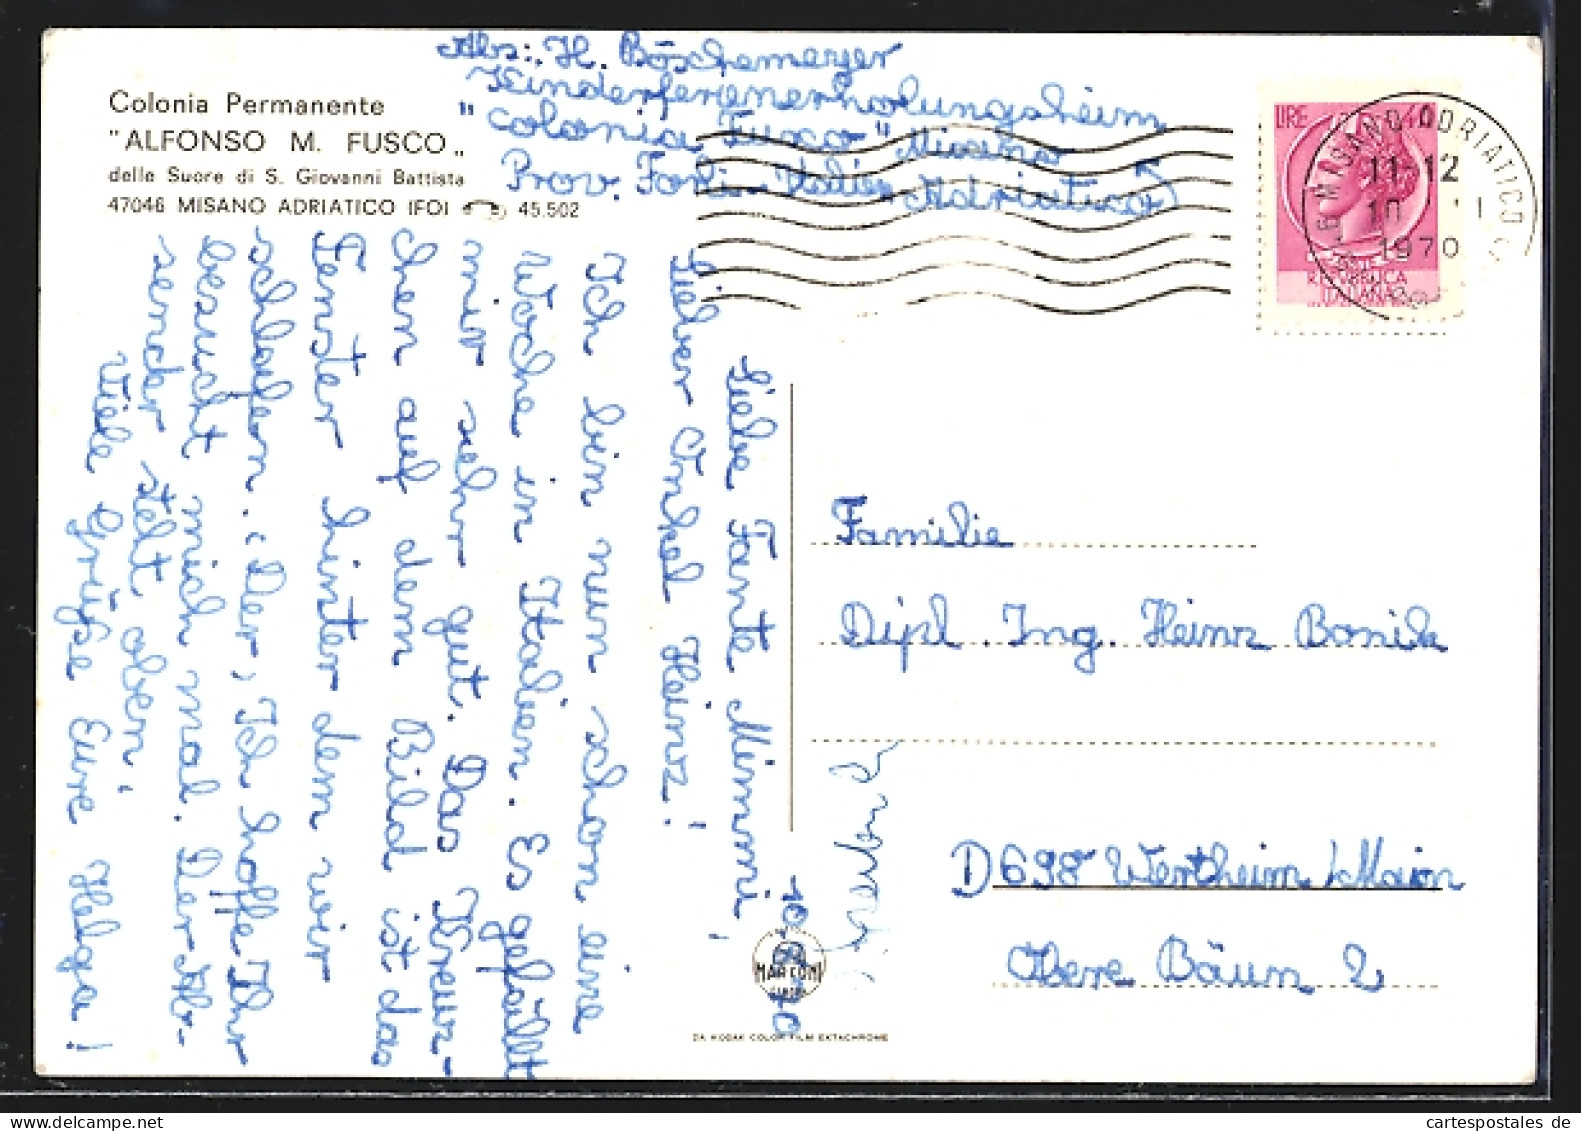 Colonia Permanente
"ALFONSO M. FUSCO„
delle Suore di S. Giovanni Battista
47046 MISANO ADRIATICO (FO) 45.502
Abs: H. Böschemeyer
Kinderferienerholungsheim
"Colonia Fusco" Misano
Prov. Forli - Italien Adriatico
LIRE 40
REPUBBLICA
ITALIANA
MISANO ADRIATICO
11-12
10
1970
Liebe Tante Mimmi,
Lieber Onkel Heinz!
Ich bin nun schon eine
Woche in Italien. Es gefällt
mir sehr gut. Das Kreuz-
chen auf dem Bild ist das
Fenster hinter dem wir
schlafen. Ich hoffe Ihr
besucht mich mal. Der Ab-
sender steht oben,
Viele Grüße Eure Helga!
Familie
Dipl. Ing. Heinz
D 698 Wertheim/Main
Obere Bäun 2
MARCONI
DA KODAK COLOR FILM EXTACHROME
cartespostales de